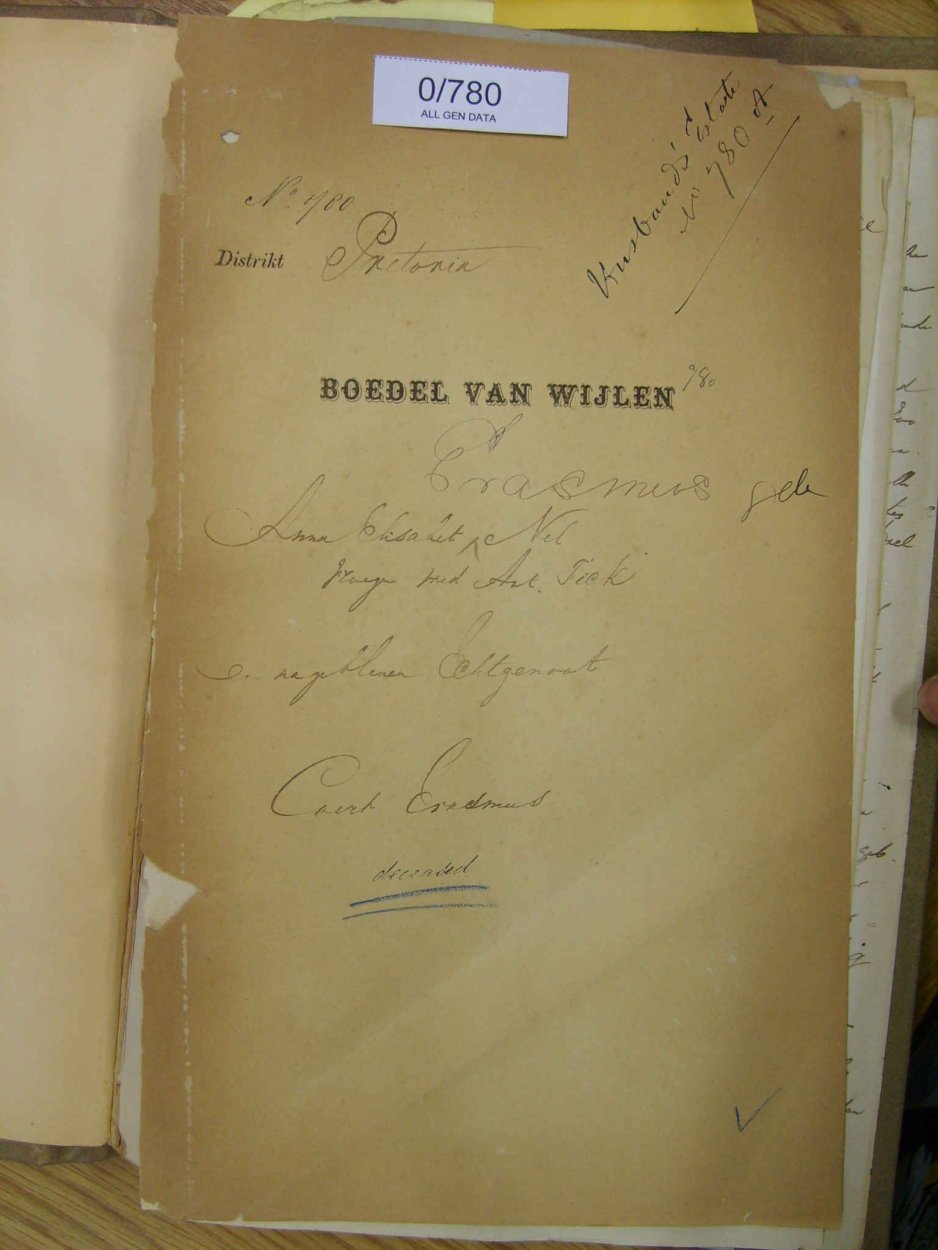 0/780
ALL GEN DATA
Husband's Estate
No 780 A
No 780
Distrikt Pretoria
BOEDEL VAN WIJLEN 780
Erasmus geb
Anna Elisabet ^ Nel
vroeger med Ant. Fick
e. nagebleven Echtgenoot
Coert Erasmus
deceased